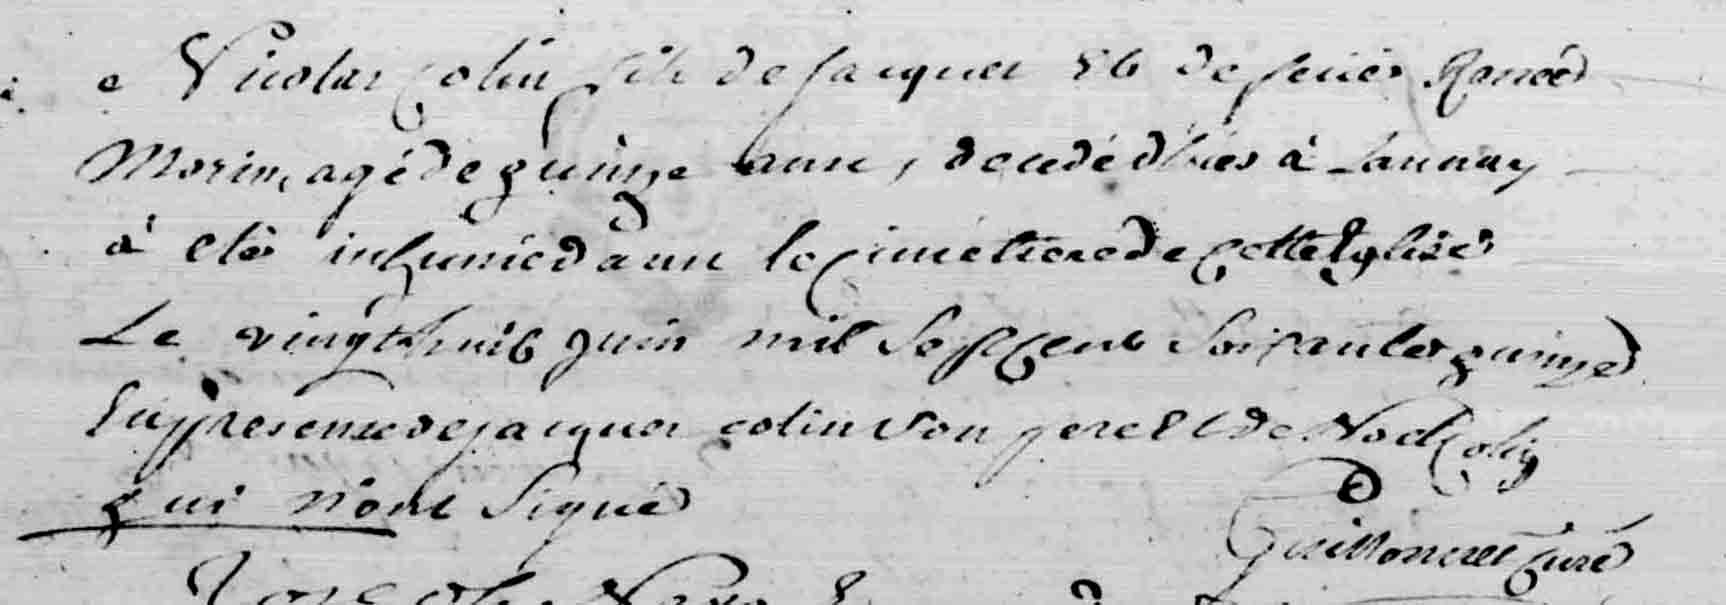 Nicolas Colin fils de jacques Et de feüe Raneé
Morin, agé de quinze anns, decedé d'hier à Launay
à eté inhumé danns le Cimétiere de Cette Eglise
Le vingthuit juin mil Sept Cent Soixante et quinze
En presence de jacques colin son pere Et de Noel Colin
qui n'ont Signé
Curé